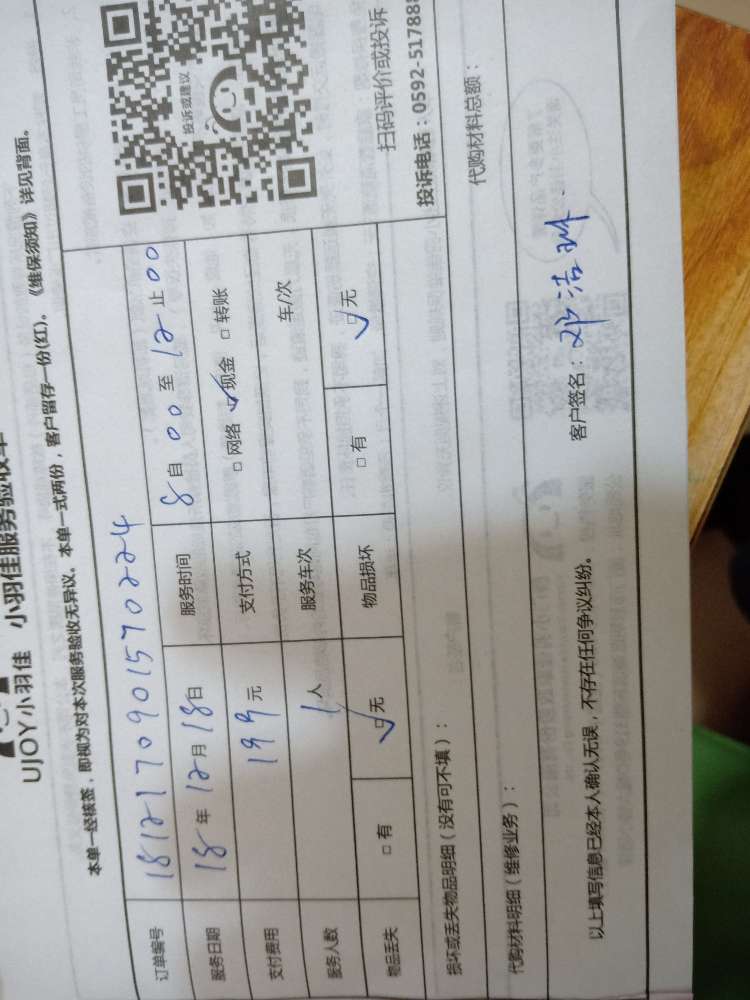 UJOY小羽佳 小羽佳服务验收单
本单一经核签，即视为对本次服务验收无异议。本单一式两份，客户留存一份(红)。《维保须知》详见背面。
订单编号 1812170901570224
服务日期 18年12月18日 服务时间 8自00至12止00
支付费用 199元 支付方式 □网络 ☑现金 □转账
服务人数 1人 服务车次 车/次
物品丢失 □有 ☑无 物品损坏 □有 ☑无
投诉或建议
扫码评价或投诉
投诉电话：0592-517888
损坏或丢失物品明细（没有可不填）：
代购材料明细（维修业务）： 代购材料总额：
以上填写信息已经本人确认无误，不存在任何争议纠纷。 客户签名：邓洁琳